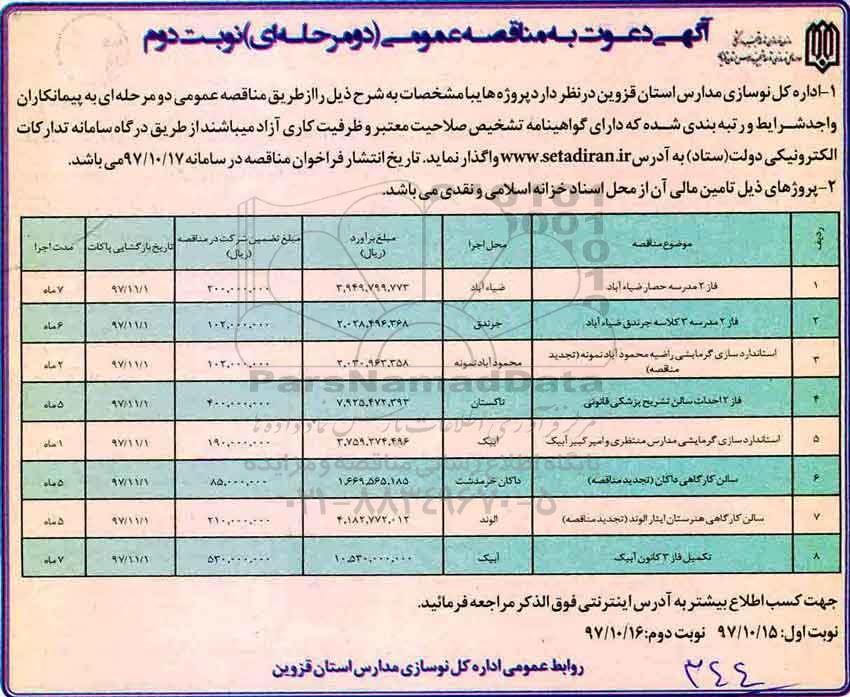 آگهی دعوت به مناقصه عمومی (دو مرحله‌ای) نوبت دوم
۱-اداره کل نوسازی مدارس استان قزوین در نظر دارد پروژه هایبا مشخصات به شرح ذیل را از طریق مناقصه عمومی دو مرحله ای به پیمانکاران
واجد شرایط و رتبه بندی شده که دارای گواهینامه تشخیص صلاحیت معتبر و ظرفیت کاری آزاد میباشند از طریق درگاه سامانه تدارکات
الکترونیکی دولت (ستاد) به آدرس www.setadiran.ir واگذار نماید. تاریخ انتشار فراخوان مناقصه در سامانه ۹۷/۱۰/۱۷ می باشد.
۲-پروژهای ذیل تامین مالی آن از محل اسناد خزانه اسلامی و نقدی می باشد.
ردیف موضوع مناقصه محل اجرا مبلغ برآورد (ریال) مبلغ تضمین شرکت در مناقصه (ریال) تاریخ بازگشایی پاکات مدت اجرا
۱ فاز ۲ مدرسه حصار ضیاء آباد ضیاء آباد ۳,۹۴۹,۷۹۹,۷۷۳ ۲۰۰,۰۰۰,۰۰۰ ۹۷/۱۱/۱ ۷ ماه
۲ فاز ۲ مدرسه ۳ کلاسه جرندق ضیاء آباد جرندق ۲,۰۲۸,۴۹۶,۳۶۸ ۱۰۲,۰۰۰,۰۰۰ ۹۷/۱۱/۱ ۶ ماه
۳ استاندارد سازی گرمایشی راضیه محمود آباد نمونه (تجدید مناقصه) محمود آباد نمونه ۲,۰۳۰,۹۶۳,۳۵۸ ۱۰۲,۰۰۰,۰۰۰ ۹۷/۱۱/۱ ۲ ماه
۴ فاز ۲ احداث سالن تشریح پزشکی قانونی تاکستان ۷,۹۲۵,۴۷۲,۳۹۳ ۴۰۰,۰۰۰,۰۰۰ ۹۷/۱۱/۱ ۵ ماه
۵ استاندارد سازی گرمایشی مدارس منتظری و امیر کبیر آبیک آبیک ۳,۷۵۹,۳۷۴,۴۹۶ ۱۹۰,۰۰۰,۰۰۰ ۹۷/۱۱/۱ ۱ ماه
۶ سالن کارگاهی داکان (تجدید مناقصه) داکان خرمدشت ۱,۶۶۹,۵۶۵,۱۸۵ ۸۵,۰۰۰,۰۰۰ ۹۷/۱۱/۱ ۵ ماه
۷ سالن کارگاهی هنرستان ایثار الوند (تجدید مناقصه) الوند ۴,۱۸۲,۷۷۲,۰۱۲ ۲۱۰,۰۰۰,۰۰۰ ۹۷/۱۱/۱ ۵ ماه
۸ تکمیل فاز ۳ کانون آبیک آبیک ۱۰,۵۳۰,۰۰۰,۰۰۰ ۵۳۰,۰۰۰,۰۰۰ ۹۷/۱۱/۱ ۷ ماه
ParsNamadData
پایگاه اطلاع رسانی مناقصه و مزایده
۰۲۱-۸۸۳۴۹۶۷۰-۵
جهت کسب اطلاع بیشتر به آدرس اینترنتی فوق الذکر مراجعه فرمائید.
نوبت اول: ۹۷/۱۰/۱۵ نوبت دوم: ۹۷/۱۰/۱۶
روابط عمومی اداره کل نوسازی مدارس استان قزوین
۳۴۴